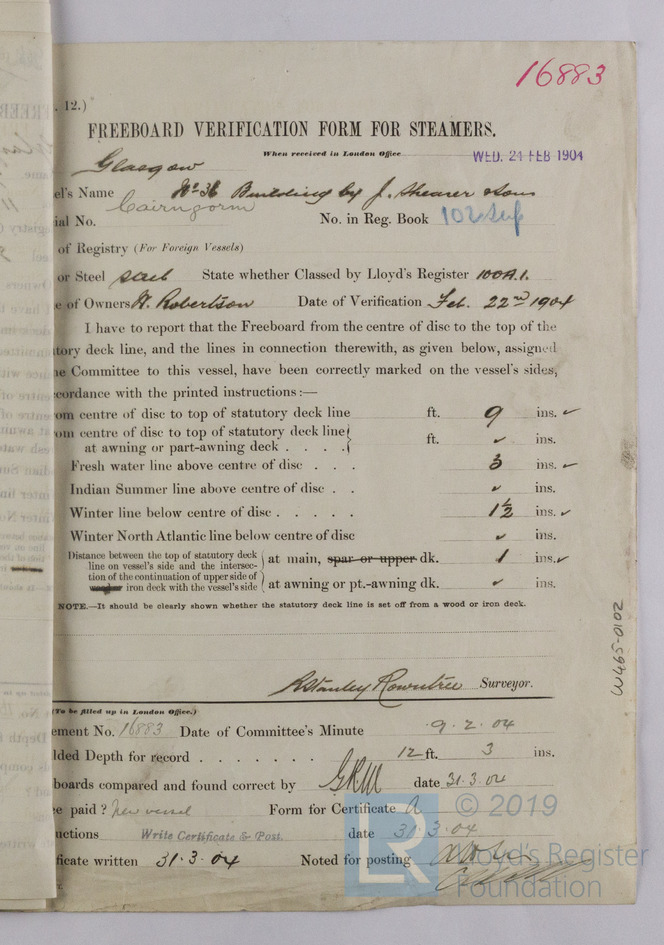 16883
. 12.)
FREEBOARD VERIFICATION FORM FOR STEAMERS.
When received in London Office WED. 24 FEB 1904
Glasgow
el's Name No 31 Building by J. Shearer & Sons
Cairngorm
ial No. No. in Reg. Book 102 Sup
of Registry (For Foreign Vessels)
or Steel Steel State whether Classed by Lloyd's Register 100A.1.
e of Owners W. Robertson Date of Verification Feb. 22nd 1904
I have to report that the Freeboard from the centre of disc to the top of the
tory deck line, and the lines in connection therewith, as given below, assigned
he Committee to this vessel, have been correctly marked on the vessel's sides,
cordance with the printed instructions :—
om centre of disc to top of statutory deck line ft. 9 ins. ✓
om centre of disc to top of statutory deck line
at awning or part-awning deck . . . . ft. ✓ ins.
Fresh water line above centre of disc . . . 3 ins. ✓
Indian Summer line above centre of disc . . ✓ ins.
Winter line below centre of disc . . . . . 1½ ins. ✓
Winter North Atlantic line below centre of disc ✓ ins.
Distance between the top of statutory deck
line on vessel's side and the intersec-
tion of the continuation of upper side of
iron deck with the vessel's side
at main, spar or upper dk. 1 ins. ✓
at awning or pt.-awning dk. ✓ ins.
NOTE.—It should be clearly shown whether the statutory deck line is set off from a wood or iron deck.
R Stanley Rowntree Surveyor.
W465-0102
(To be filled up in London Office.)
ement No. 16883 Date of Committee's Minute 9.2.04
lded Depth for record . . . . . . . 12 ft. 3 ins.
boards compared and found correct by date 31.3.04
e paid ? New vessel Form for Certificate A
uctions Write Certificate & Post. date 31.3.04
ficate written 31.3.04 Noted for posting
LR © 2019
Lloyd's Register
Foundation